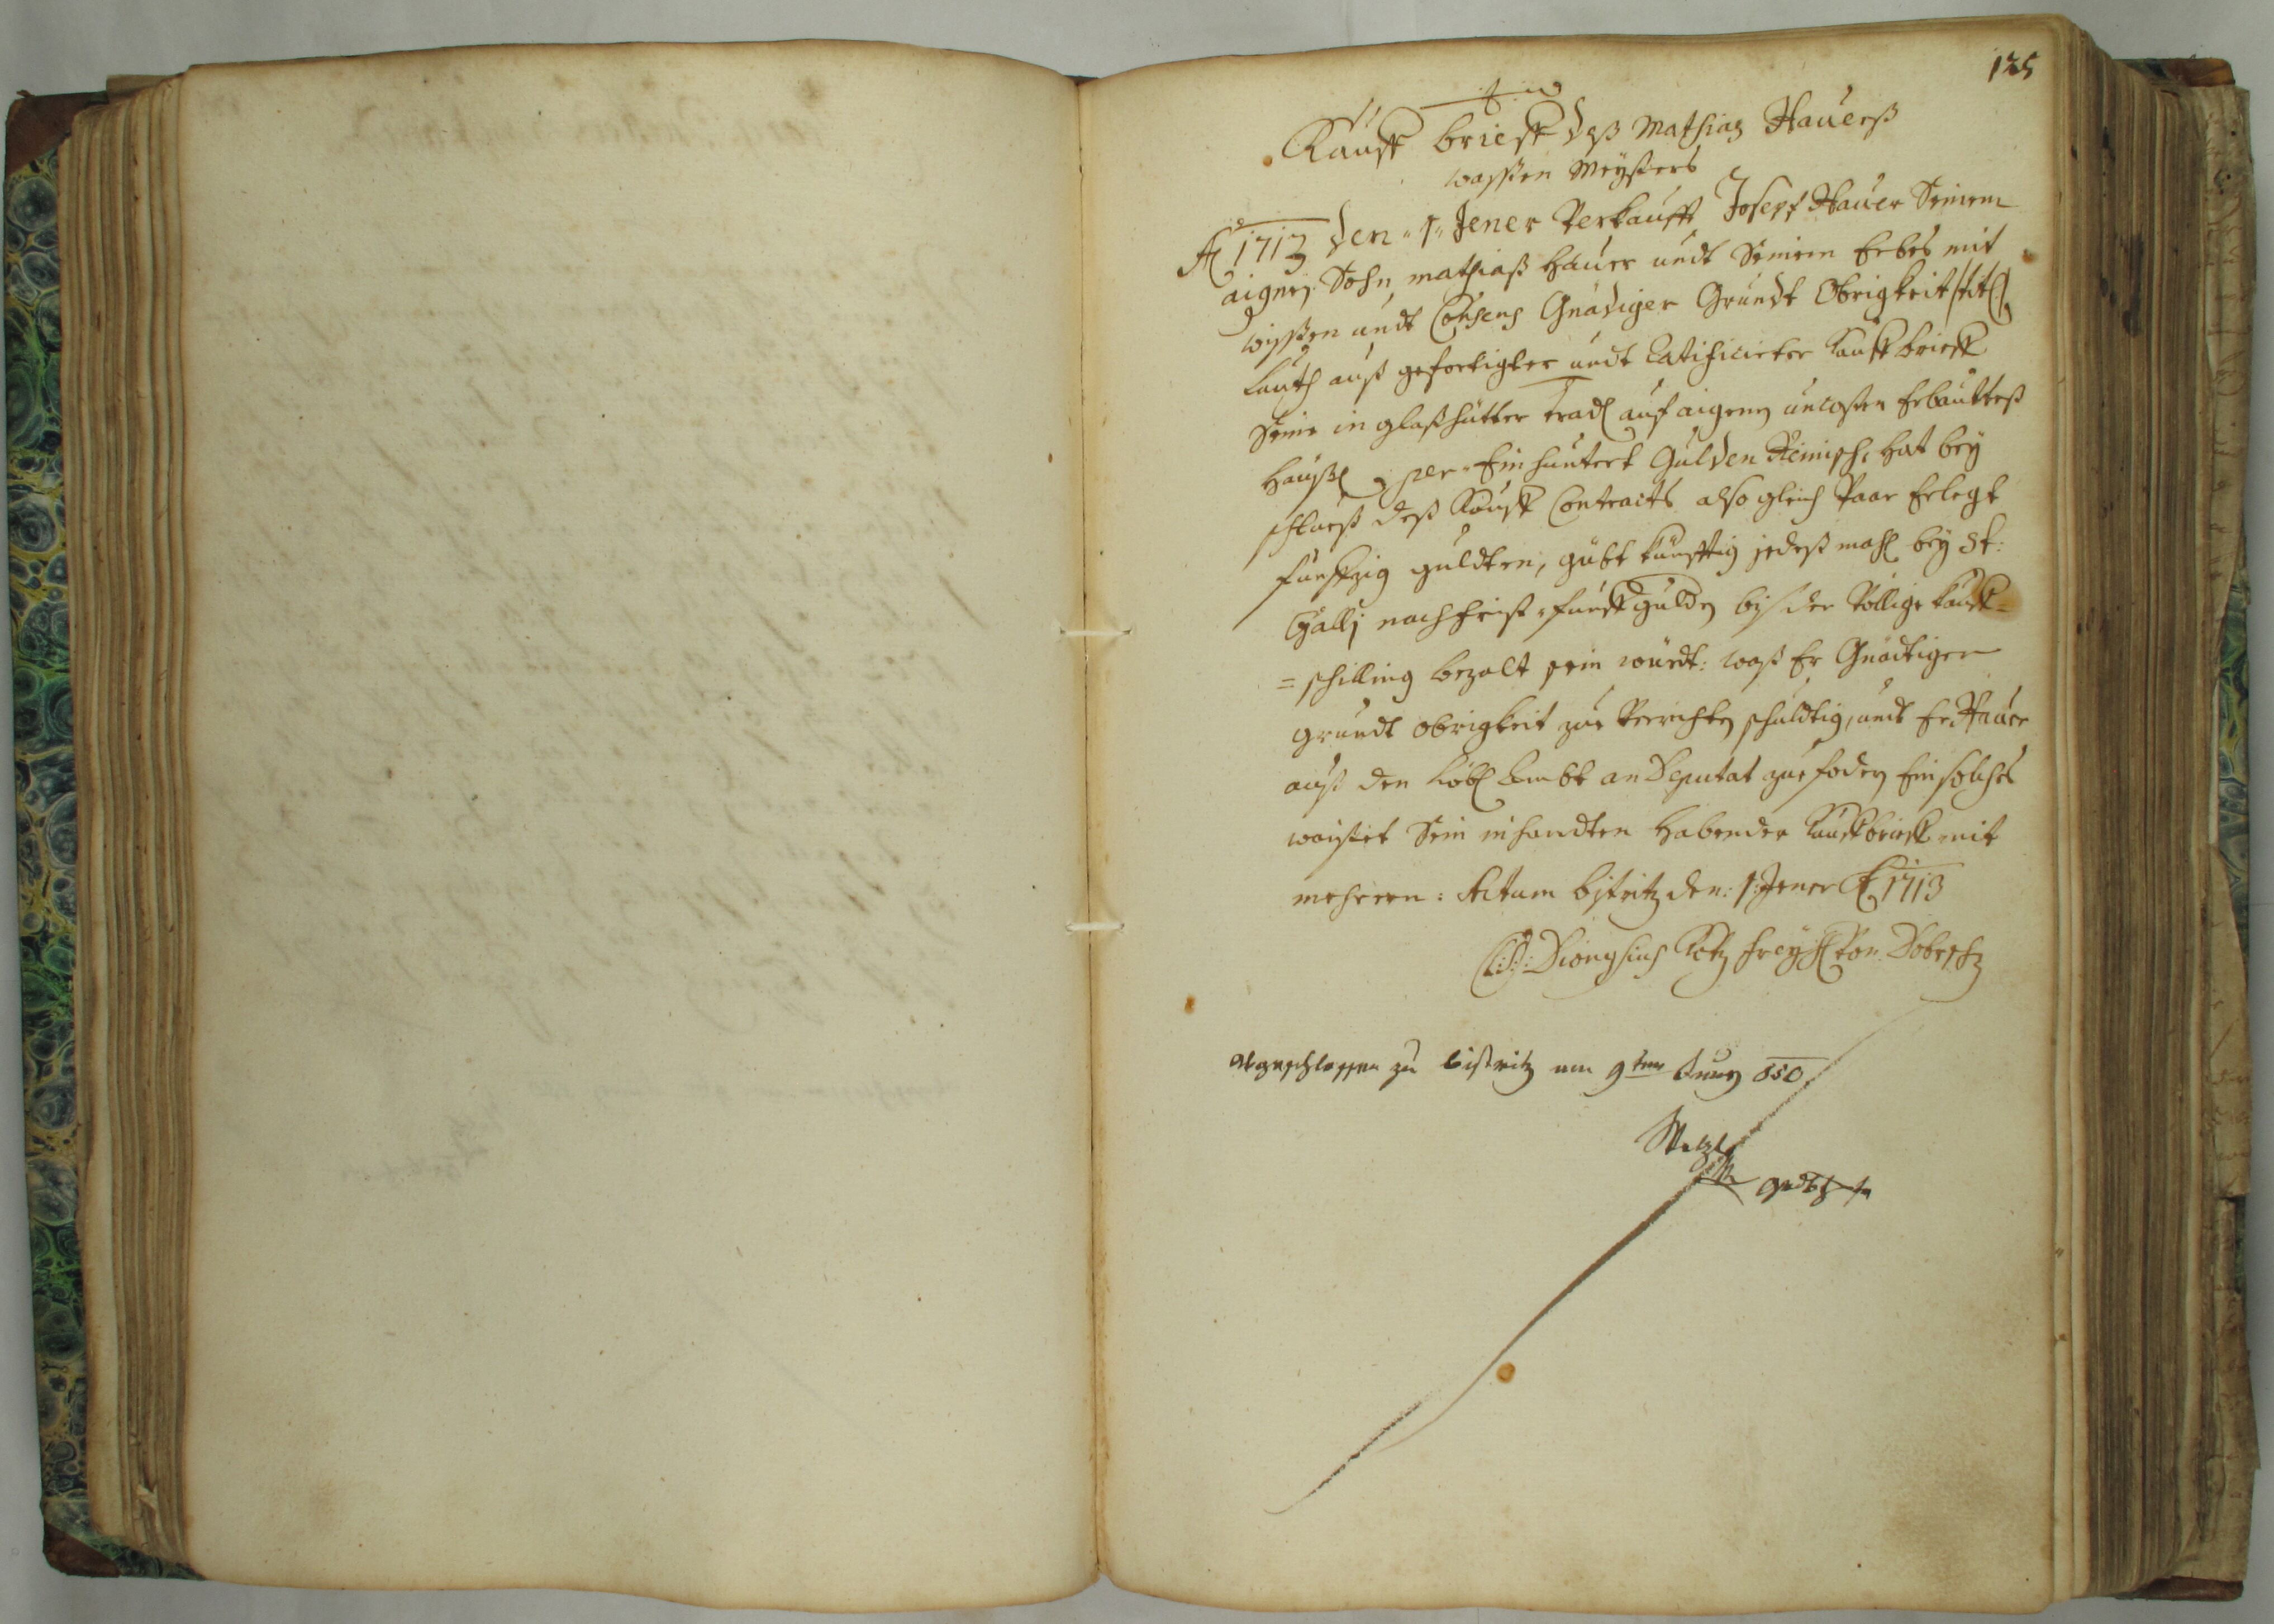 125
Kauff brieff deß Mathias Hauerß
wassen Meysters
Ao 1713 den 1 Jener Verkaufft Joseph Hauer Seinem
aignen Sohn mathiaß Hauer undt Seinem Erben mit
wissen undt Consens Gnädiger Grundt Obrigkeit /tit:/
Lauth auß gefertigter undt Ratificirter Kauff brieff
Seine in glaßhütter auf aigenen uncosten Erbauttes
Häußl, per Ein hundert Gulden Reinisch, hat bey
schluß deß Kauff Contracts also gleich Paar Erlegt
funffzig guldten, gübt künfftig jedeß mahl bey St:
Galli nach frist funff gulden biß der Völlige Kauff=
=schilling bezalt sein würdt: waß Er Gnädtiger
grundt obrigkeit zue Verrichten schuldtig, undt Er Hauer
auß den Löbl Ambt an Deputat zue fodern Ein solches
weißet Sein in handten Habender Kauffbrieff mit
mehrern: Actum bistritz den: 1 Jener Ao 1713
(L:S:) Dionysius Kotz freyh von Dobrschz
Abgeschlossen zu Bistritz am 9ten Juny 850